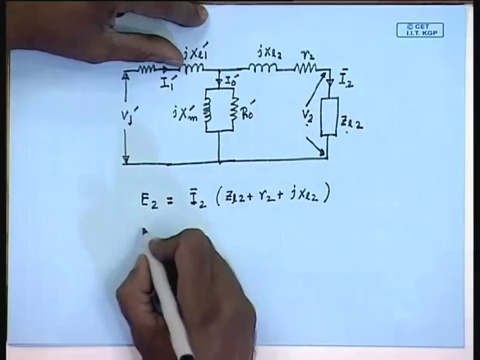 © CET
I.I.T. KGP
jXℓ1′ jXℓ2 r2
I1′ I0′ Ī2
V1′ jXm′ R0′ V2 Zℓ2
E2 = Ī2 (Zℓ2 + r2 + jXℓ2)